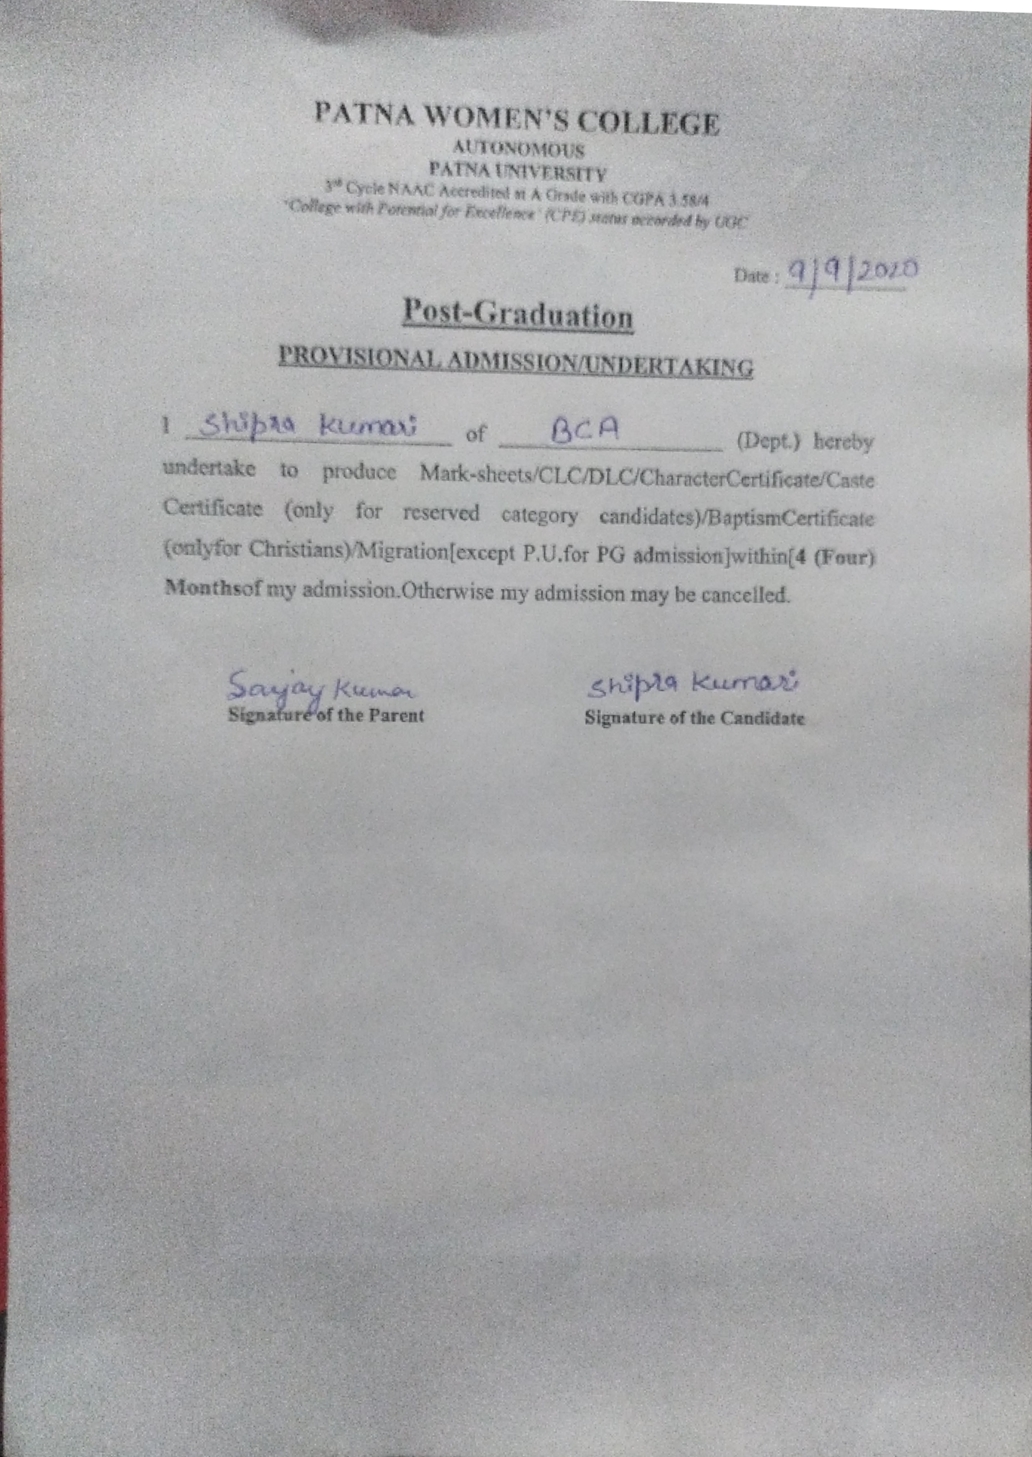 PATNA WOMEN'S COLLEGE
AUTONOMOUS
PATNA UNIVERSITY
3rd Cycle NAAC Accredited at A Grade with CGPA 3.58/4
'College with Potential for Excellence' (CPE) status accorded by UGC
Date : 9/9/2020
Post-Graduation
PROVISIONAL ADMISSION/UNDERTAKING
I Shipra Kumari of BCA (Dept.) hereby
undertake to produce Mark-sheets/CLC/DLC/CharacterCertificate/Caste
Certificate (only for reserved category candidates)/BaptismCertificate
(onlyfor Christians)/Migration[except P.U.for PG admission]within[4 (Four)
Monthsof my admission.Otherwise my admission may be cancelled.
Sanjay Kumar Shipra Kumari
Signature of the Parent Signature of the Candidate